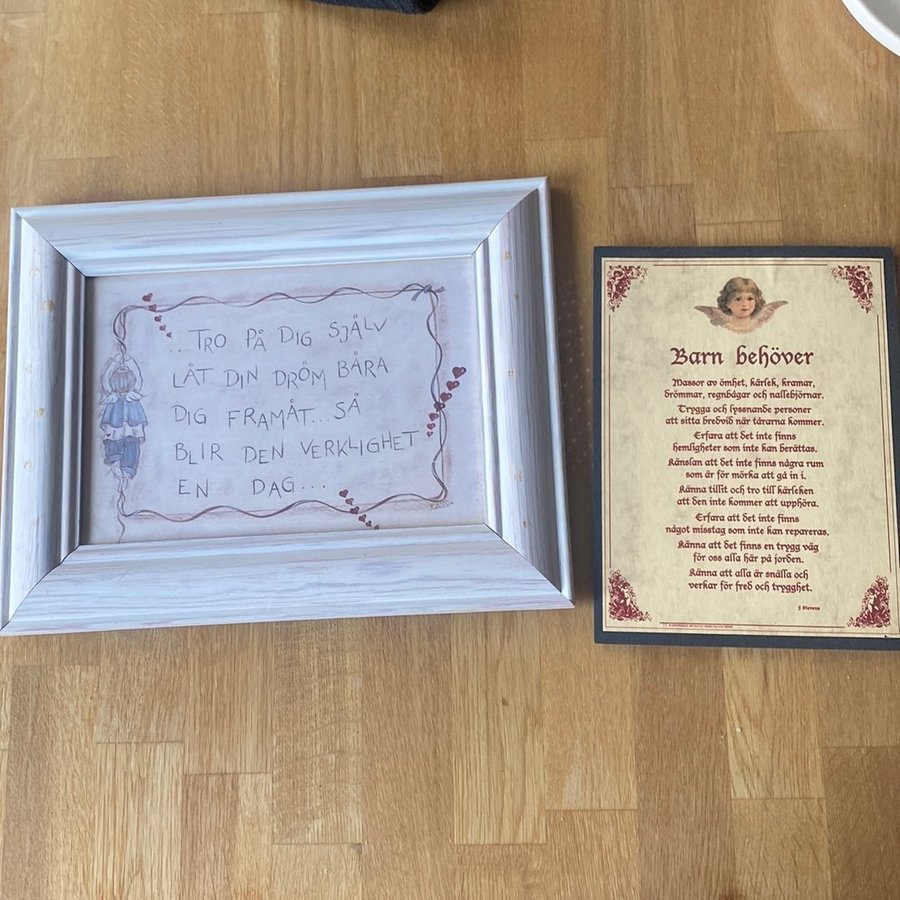 ...TRO PÅ DIG SJÄLV
LÅT DIN DRÖM BÄRA
DIG FRAMÅT...SÅ
BLIR DEN VERKLIGHET
EN DAG...
Barn behöver
Massor av ömhet, kärlek, kramar,
drömmar, regnbågar och nallebjörnar.
Trygga och lyssnande personer
att sitta bredvid när tårarna kommer.
Erfara att det inte finns
hemligheter som inte kan berättas.
Känslan att det inte finns några rum
som är för mörka att gå in i.
Känna tillit och tro till kärleken
att den inte kommer att upphöra.
Erfara att det inte finns
något misstag som inte kan repareras.
Känna att det finns en trygg väg
för oss alla här på jorden.
Känna att alla är snälla och
verkar för fred och trygghet.
J Stevens